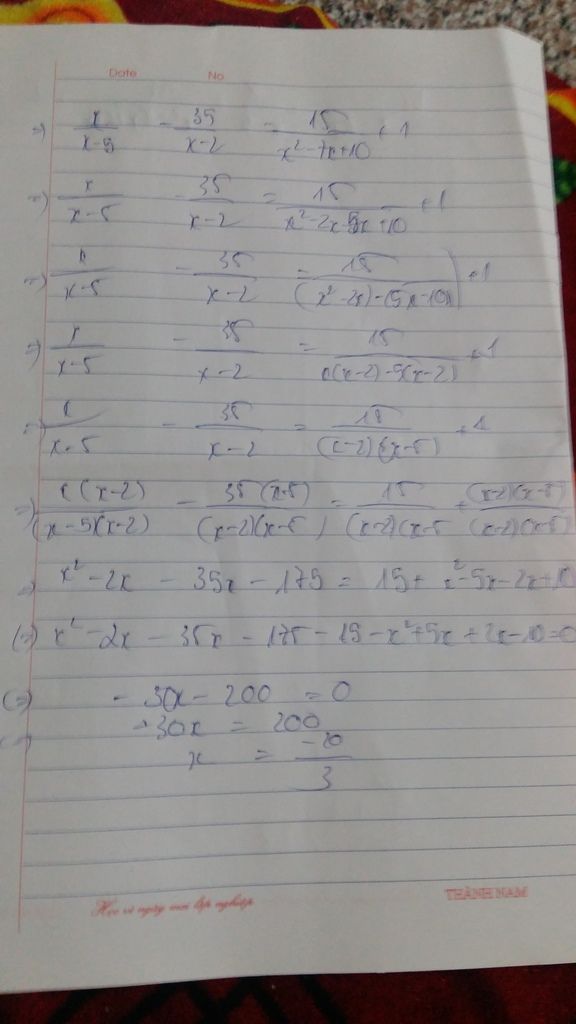 Date No
=> x/(x-5) - 35/(x-2) = 15/(x²-7x+10) + 1
=> x/(x-5) - 35/(x-2) = 15/(x²-2x-5x+10) + 1
=> x/(x-5) - 35/(x-2) = 15/((x²-2x)-(5x-10)) + 1
=> x/(x-5) - 35/(x-2) = 15/(x(x-2)-5(x-2)) + 1
=> x/(x-5) - 35/(x-2) = 15/((x-2)(x-5)) + 1
=> x(x-2)/((x-5)(x-2)) - 35(x-5)/((x-2)(x-5)) = 15/((x-2)(x-5) + (x-2)(x-5)/((x-2)(x-5)
=> x²-2x - 35x - 175 = 15 + x²-5x-2x+10
(=) x²-2x - 35x - 175 - 15 - x²+5x+2x-10=0
(=) - 30x - 200 = 0
-30x = 200
x = -20/3
THÀNH NAM